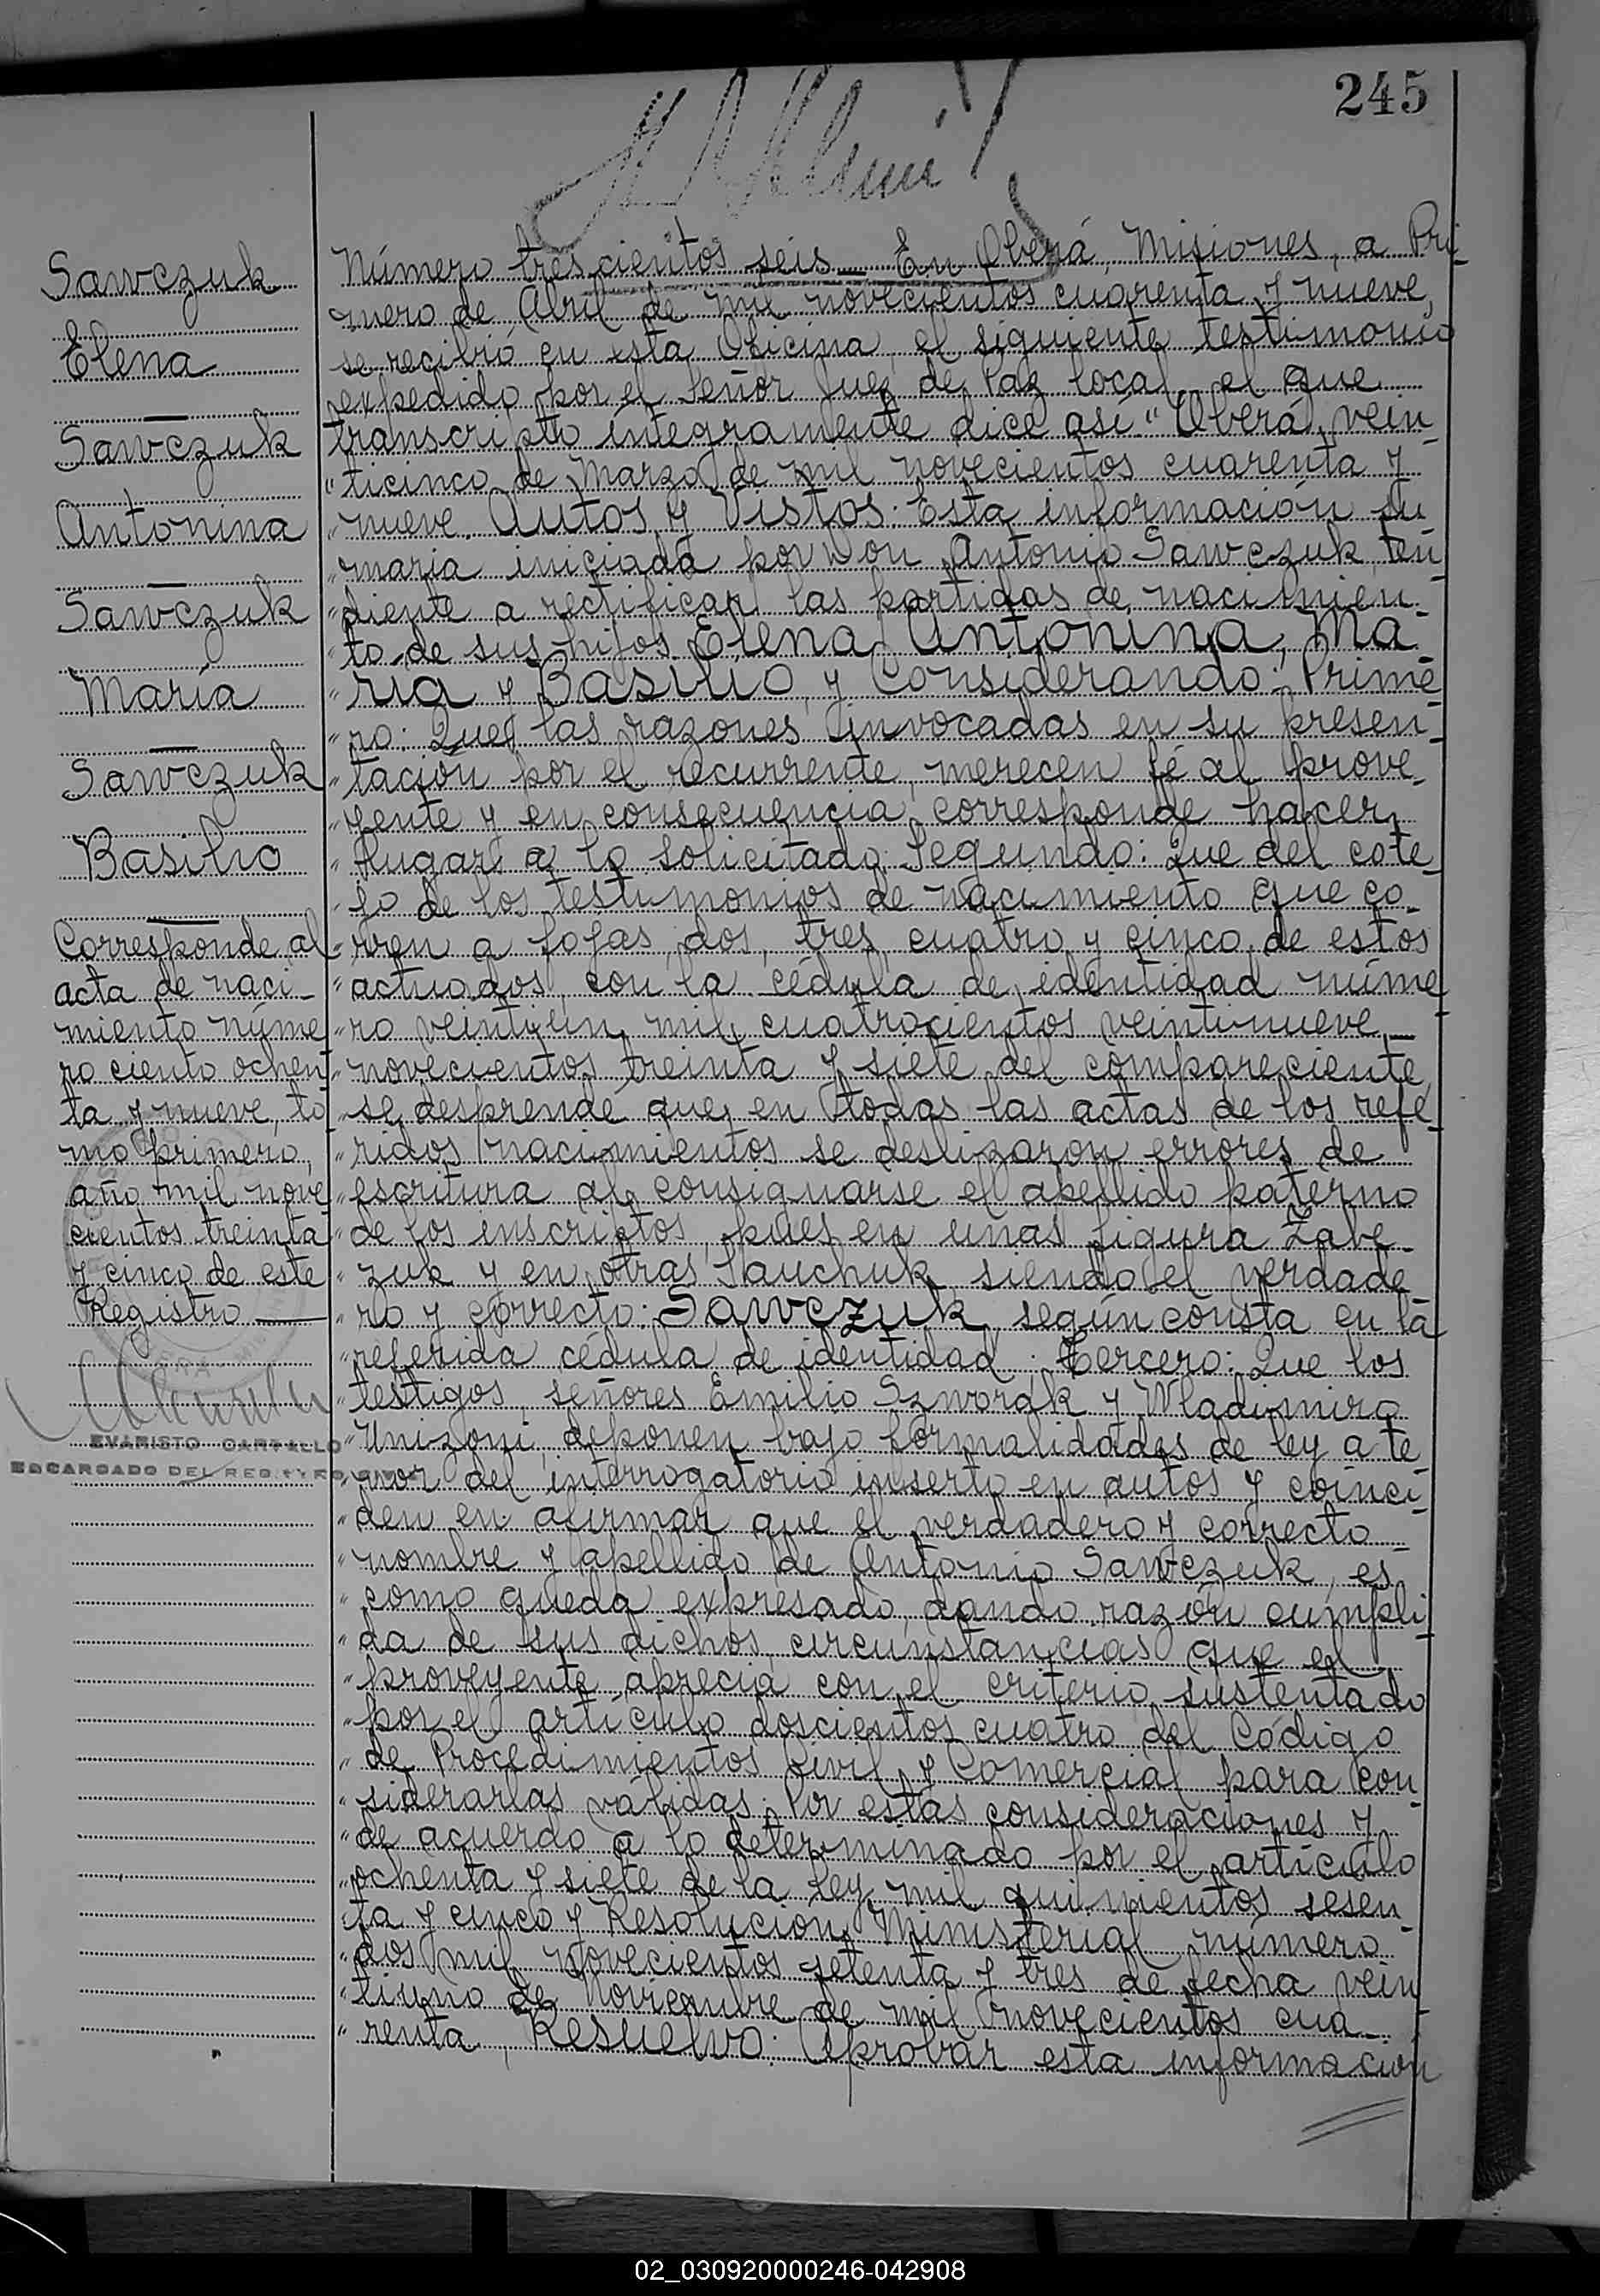 245
Sawczuk
Elena
Sawczuk
Antonina
Sawczuk
María
Sawczuk
Basilio
Corresponde al
acta de naci-
miento núme
ro ciento ochen-
ta y nueve, to
mo primero,
año mil nove
cientos treinta
y cinco de este
Registro
EVARISTO CARTALLO
ENCARGADO DEL REGISTRO
Número trescientos seis_ En Oberá, Misiones, a Pri-
mero de Abril de mil novecientos cuarenta y nueve,
se recibió en esta Oficina, el siguiente testimonio
expedido por el Señor Juez de Paz local, el que
transcripto íntegramente dice así: "Oberá, vein-
"ticinco de Marzo de mil novecientos cuarenta y
"nueve. Autos y Vistos: Esta información su
"maria iniciada por Don Antonio Sawczuk, ten-
"diente a rectificar las partidas de nacimien-
"to de sus hijos Elena, Antonina, Ma-
"ria y Basilio, y Considerando: Prime-
"ro: Que las razones invocadas en su presen-
"tación por el recurrente, merecen fé al prove-
"yente y en consecuencia corresponde hacer
"lugar a lo solicitado. Segundo: Que del cote-
"jo de los testimonios de nacimiento que co-
"rren a fojas, dos, tres, cuatro y cinco, de estos
"actuados, con la cédula de identidad núme-
"ro veintiún mil cuatrocientos veintinueve_
"novecientos treinta y siete del compareciente,
"se desprende que, en todas las actas de los refe-
"ridos nacimientos se deslizaron errores de
"escritura al consignarse el apellido paterno
"de los inscriptos, pues en unas figura Zave-
"zuk y en otras Sauchuk siendo el verdade-
"ro y correcto: Sawczuk, según consta en la
"referida cédula de identidad. Tercero: Que los
"testigos, señores Emilio Szworak y Wladimiro
"Unizoni, deponen bajo formalidades de ley a te
"nor del interrogatorio inserto en autos y coinci-
"den en afirmar que el verdadero y correcto
"nombre y apellido de Antonio Sawczuk, es
"como queda expresado, dando razón cumpli-
"da de sus dichos, circunstancias que el
"proveyente aprecia con el criterio sustentado
"por el artículo doscientos cuatro del Código
"de Procedimientos Civil y Comercial para con-
"siderarlas válidas. Por estas consideraciones y
"de acuerdo a lo determinado por el artículo
"ochenta y siete de la ley mil quinientos sesen-
"ta y cinco y Resolución Ministerial número
"dos mil novecientos setenta y tres de fecha vein
"tiuno de Noviembre de mil novecientos cua-
"renta, Resuelvo: Aprobar esta información
02_030920000246-042908